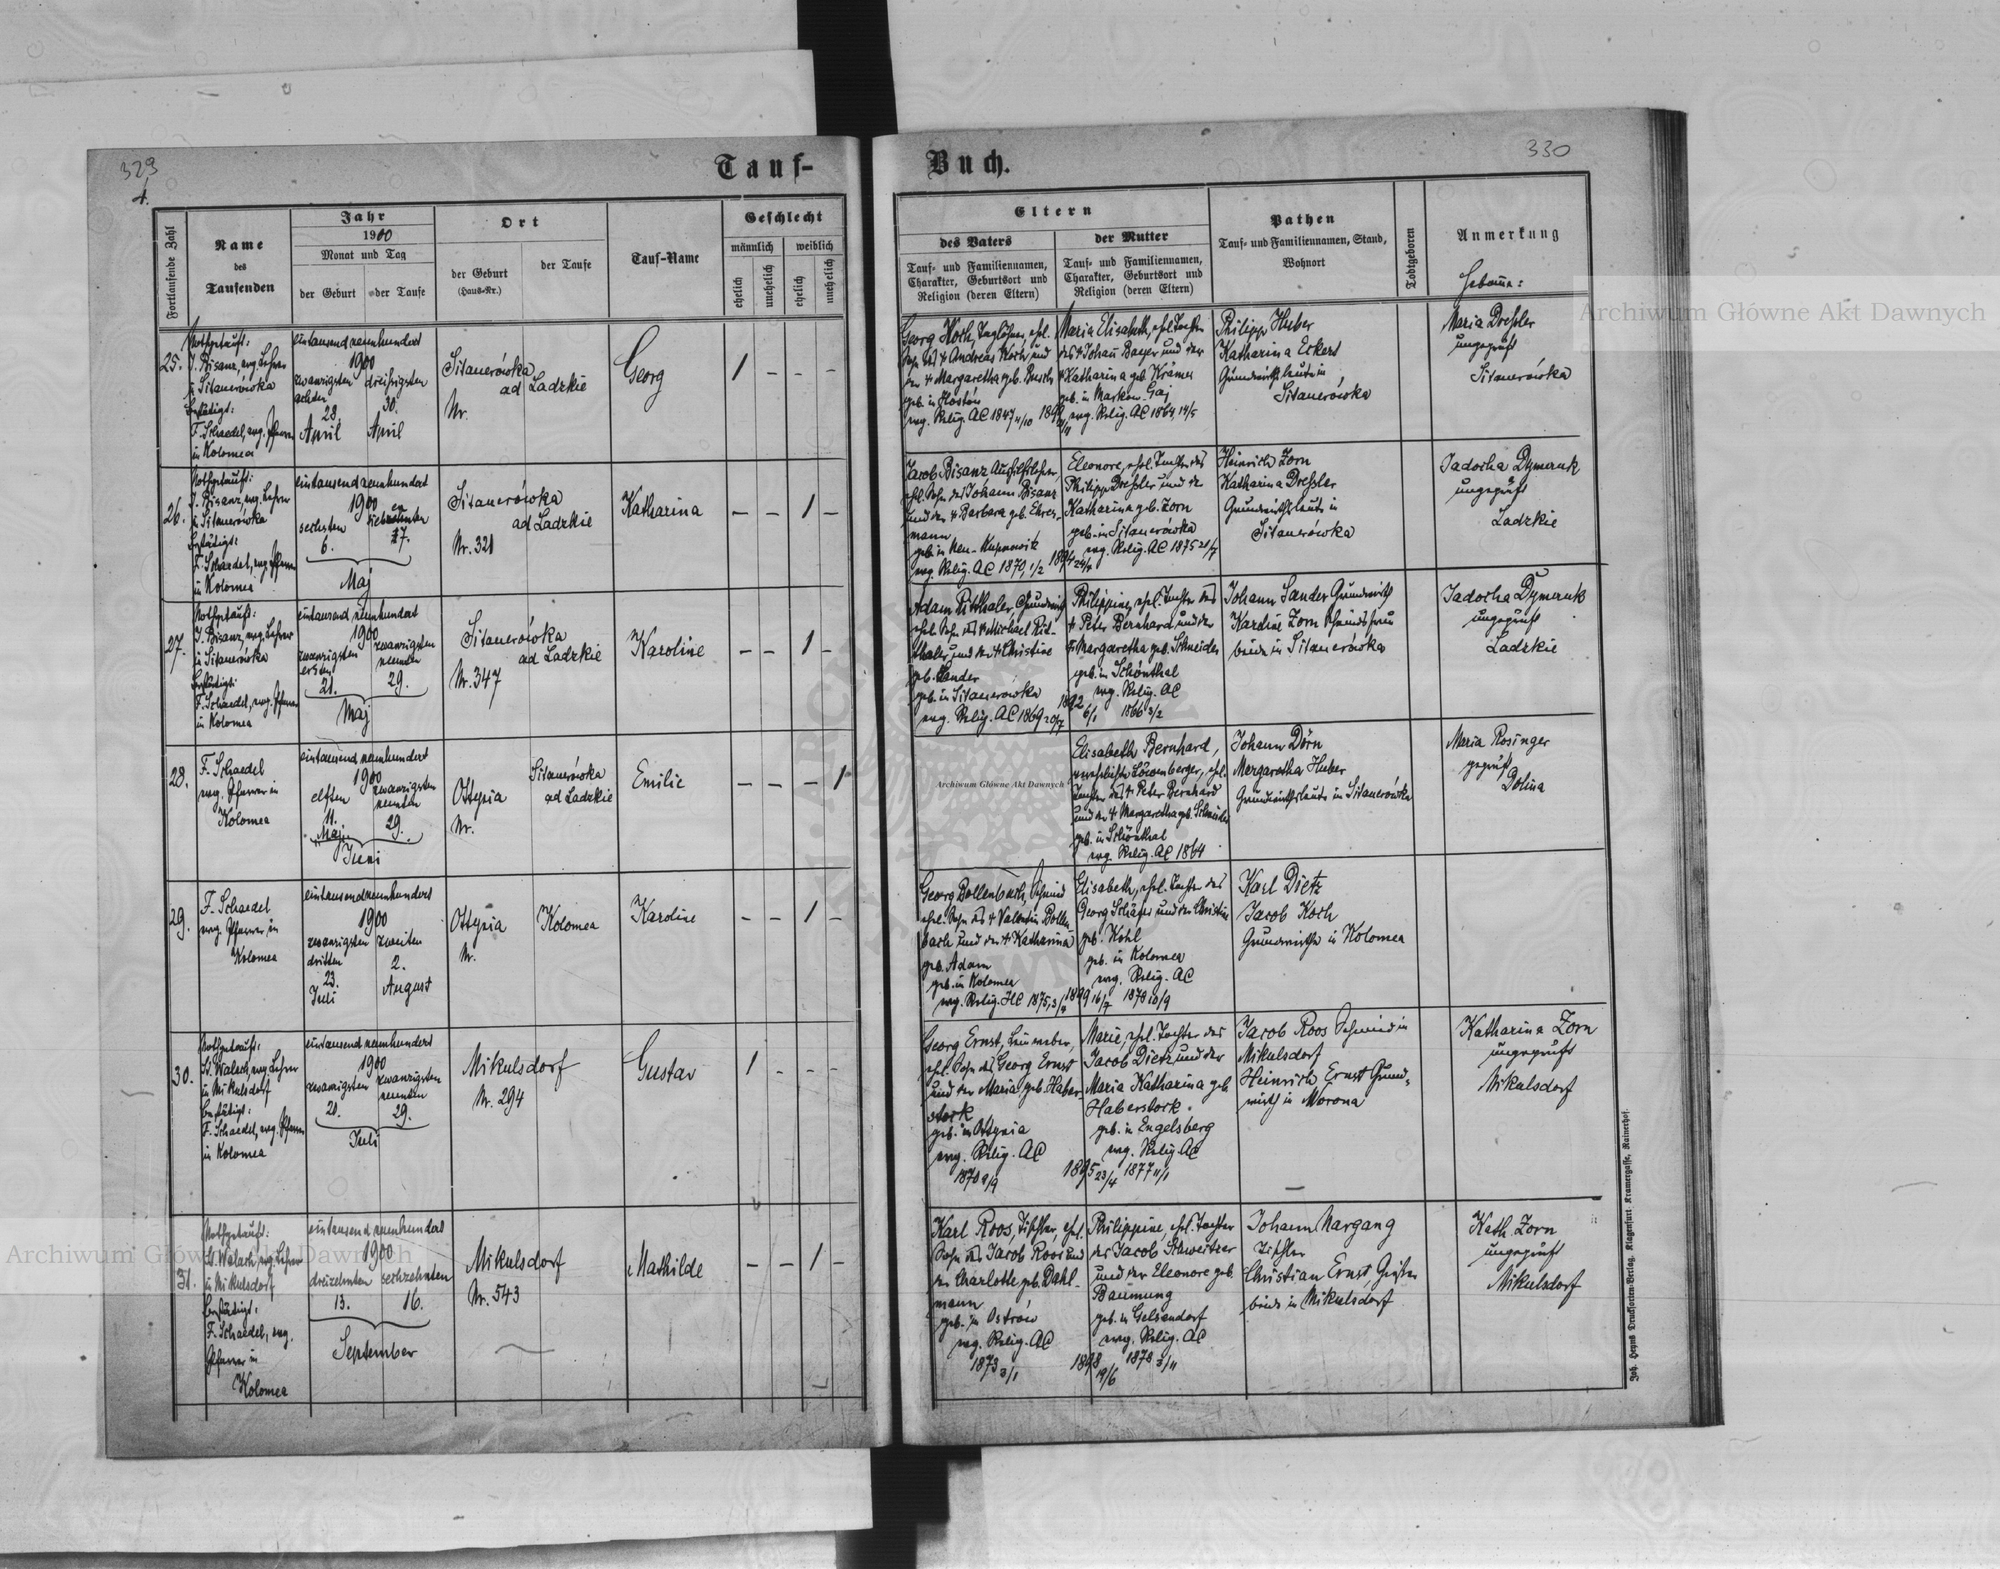 329
4.
Tauf-
Fortlaufende Zahl
Name
des
Taufenden
Jahr
1900
Monat und Tag
der Geburt
der Taufe
Ort
der Geburt
(Haus-Nr.)
der Taufe
Tauf-Name
Geschlecht
männlich
weiblich
ehelich
unehelich
ehelich
unehelich
25.
Nothgetauft:
J. Bisanz, evg. Lehrer
in Sitauerówka
bestätigt:
F. Schaedel, evg. Pfarrer
in Kolomea
eintausend neunhundert
1900
zwanzigsten dreißigsten
achten
28. 30.
April April
Sitauerówka
ad Ladzkie
Nr.
Georg
1 – – –
26.
Nothgetauft:
J. Bisanz, evg. Lehrer
in Sitauerówka
bestätigt:
F. Schaedel, evg. Pfarrer
in Kolomea
eintausend neunhundert
1900
sechsten
6. 17.
Maj
Sitauerówka
ad Ladzkie
Nr. 321
Katharina
– – 1 –
27.
Nothgetauft:
J. Bisanz, evg. Lehrer
in Sitauerówka
bestätigt:
F. Schaedel, evg. Pfarrer
in Kolomea
eintausend neunhundert
1900
zwanzigsten zwanzigsten
ersten neunten
21. 29.
Maj
Sitauerówka
ad Ladzkie
Nr. 347
Karoline
– – 1 –
28.
F. Schaedel
evg. Pfarrer in
Kolomea
eintausend neunhundert
1900
elften zwanzigsten
neunten
11. 29.
Maj
Juni
Ottynia
Nr.
Sitauerówka
ad Ladzkie
Emilie
– – – 1
29.
F. Schaedel
evg. Pfarrer in
Kolomea
eintausendneunhundert
1900
zwanzigsten zweiten
dritten
23. 2.
Juli August
Ottynia
Nr.
Kolomea
Karoline
– – 1 –
30.
Nothgetauft:
St. Walach, evg. Lehrer
in Mikulsdorf
bestätigt:
F. Schaedel, evg. Pfarrer
in Kolomea
eintausend neunhundert
1900
zwanzigsten zwanzigsten
neunten
20. 29.
Juli
Mikulsdorf
Nr. 294
Gustav
1 – – –
31.
Nothgetauft:
St. Walach, evg. Lehrer
in Mikulsdorf
bestätigt:
F. Schaedel, evg.
Pfarrer in
Kolomea
eintausend neunhundert
1900
dreizehnten sechzehnten
13. 16.
September
Mikulsdorf
Nr. 543
Mathilde
– – 1 –
330
Buch.
Eltern
des Vaters
Tauf- und Familiennamen,
Charakter, Geburtsort und
Religion (deren Eltern)
der Mutter
Tauf- und Familiennamen,
Charakter, Geburtsort und
Religion (deren Eltern)
Pathen
Tauf- und Familiennamen, Stand,
Wohnort
Todtgeboren
Anmerkung
Hebamme:
Georg Koch, Taglöhner, ehel.
Sohn des † Andreas Koch und
der † Margaretha geb. Busch
geb. in
evg. Relig. AC 1847 11/10
Maria Elisabeth, ehel. Tochter
des † Johann Bayer und der
† Katharina geb. Krämer
geb. in Markow. Gaj
evg. Relig. AC 1864 14/5
Philipp Huber
Katharina Eckert
Grundwirthsleute in
Sitauerówka
Maria Dreßler
ungeprüft
Sitauerówka
Jacob Bisanz Aushilfslehrer,
ehel. Sohn des Johann Bisanz
und der † Barbara geb. Ehres-
mann
geb. in Neu-Kupnowitz
evg. Relig. AC 1870, 1/2
1894
Eleonore, ehel. Tochter des
Philipp Dreßler und der
Katharina geb. Zorn
geb. in Sitauerówka
evg. Relig. AC 1875 21/7
Heinrich Zorn
Katharina Dreßler
Grundwirthsleute in
Sitauerówka
Jadocha Dymeruk
ungeprüft
Ladzkie
Adam Ritthaler, Grundwirth
ehel. Sohn des † Michael Rit-
thaler und der † Christine
geb. Sander
geb. in Sitauerówka
evg. Relig. AC 1869 20/7
1892
6/1
Philippine, ehel. Tochter des
† Peter Bernhard und der
† Margaretha geb. Schneider
geb. in Schönthal
evg. Relig. AC
1866 3/2
Johann Sander Grundwirth
Karoline Zorn
beide in Sitauerówka
Jadocha Dymeruk
ungeprüft
Ladzkie
Elisabeth Bernhard,
verehelichte Löwenberger, ehel.
Tochter des † Peter Bernhard
und der † Margaretha geb. Schneider
geb. in Schönthal
evg. Relig. AC 1864
Johann Dörn
Margaretha Huber
Grundwirthsleute in Sitauerówka
Maria Rosinger
geprüft
Dolina
Georg Bollenbach, Schmied
ehel. Sohn des † Valentin Bollen-
bach und der † Katharina
geb. Adam
geb. in Kolomea
evg. Relig. HC 1875,
1899 16/7
Elisabeth, ehel. Tochter des
Georg Schäfer und der Christine
geb. Kohl
geb. in Kolomea
evg. Relig. AC
1878 10/9
Karl Dietz
Jacob Koch
Grundwirthe in Kolomea
Georg Ernst, Leinweber,
ehel. Sohn des Georg Ernst
und der Maria geb. Haber-
stock
geb. in Ottynia
evg. Relig. AC
1870 9/9
1895 23/4
Marie, ehel. Tochter des
Jacob Dietz und der
Maria Katharina geb.
Haberstock
geb. in Engelsberg
evg. Relig. AC
1877 11/1
Jacob Roos Schmied in
Mikulsdorf
Heinrich Ernst Grund-
wirth in Morona
Katharina Zorn
ungeprüft
Mikulsdorf
Karl Roos, Tischler, ehel.
Sohn des Jacob Roos und
der Charlotte geb. Dahl-
mann
geb. in Ostrów
evg. Relig. AC
1873 3/1
1898
19/6
Philippine, ehel. Tochter
des Jacob Schweitzer
und der Eleonore geb.
Baumung
geb. in Gelsendorf
evg. Relig. AC
1878 3/11
Johann Margang
Tischler
Christian Ernst,
beide in Mikulsdorf
Kath. Zorn
ungeprüft
Mikulsdorf
Joh. Heyns Drucksorten-Verlag. Klagenfurt. Kramergasse, Rainerhof.
Archiwum Główne Akt Dawnych
Archiwum Główne Akt Dawnych
Archiwum Główne Akt Dawnych